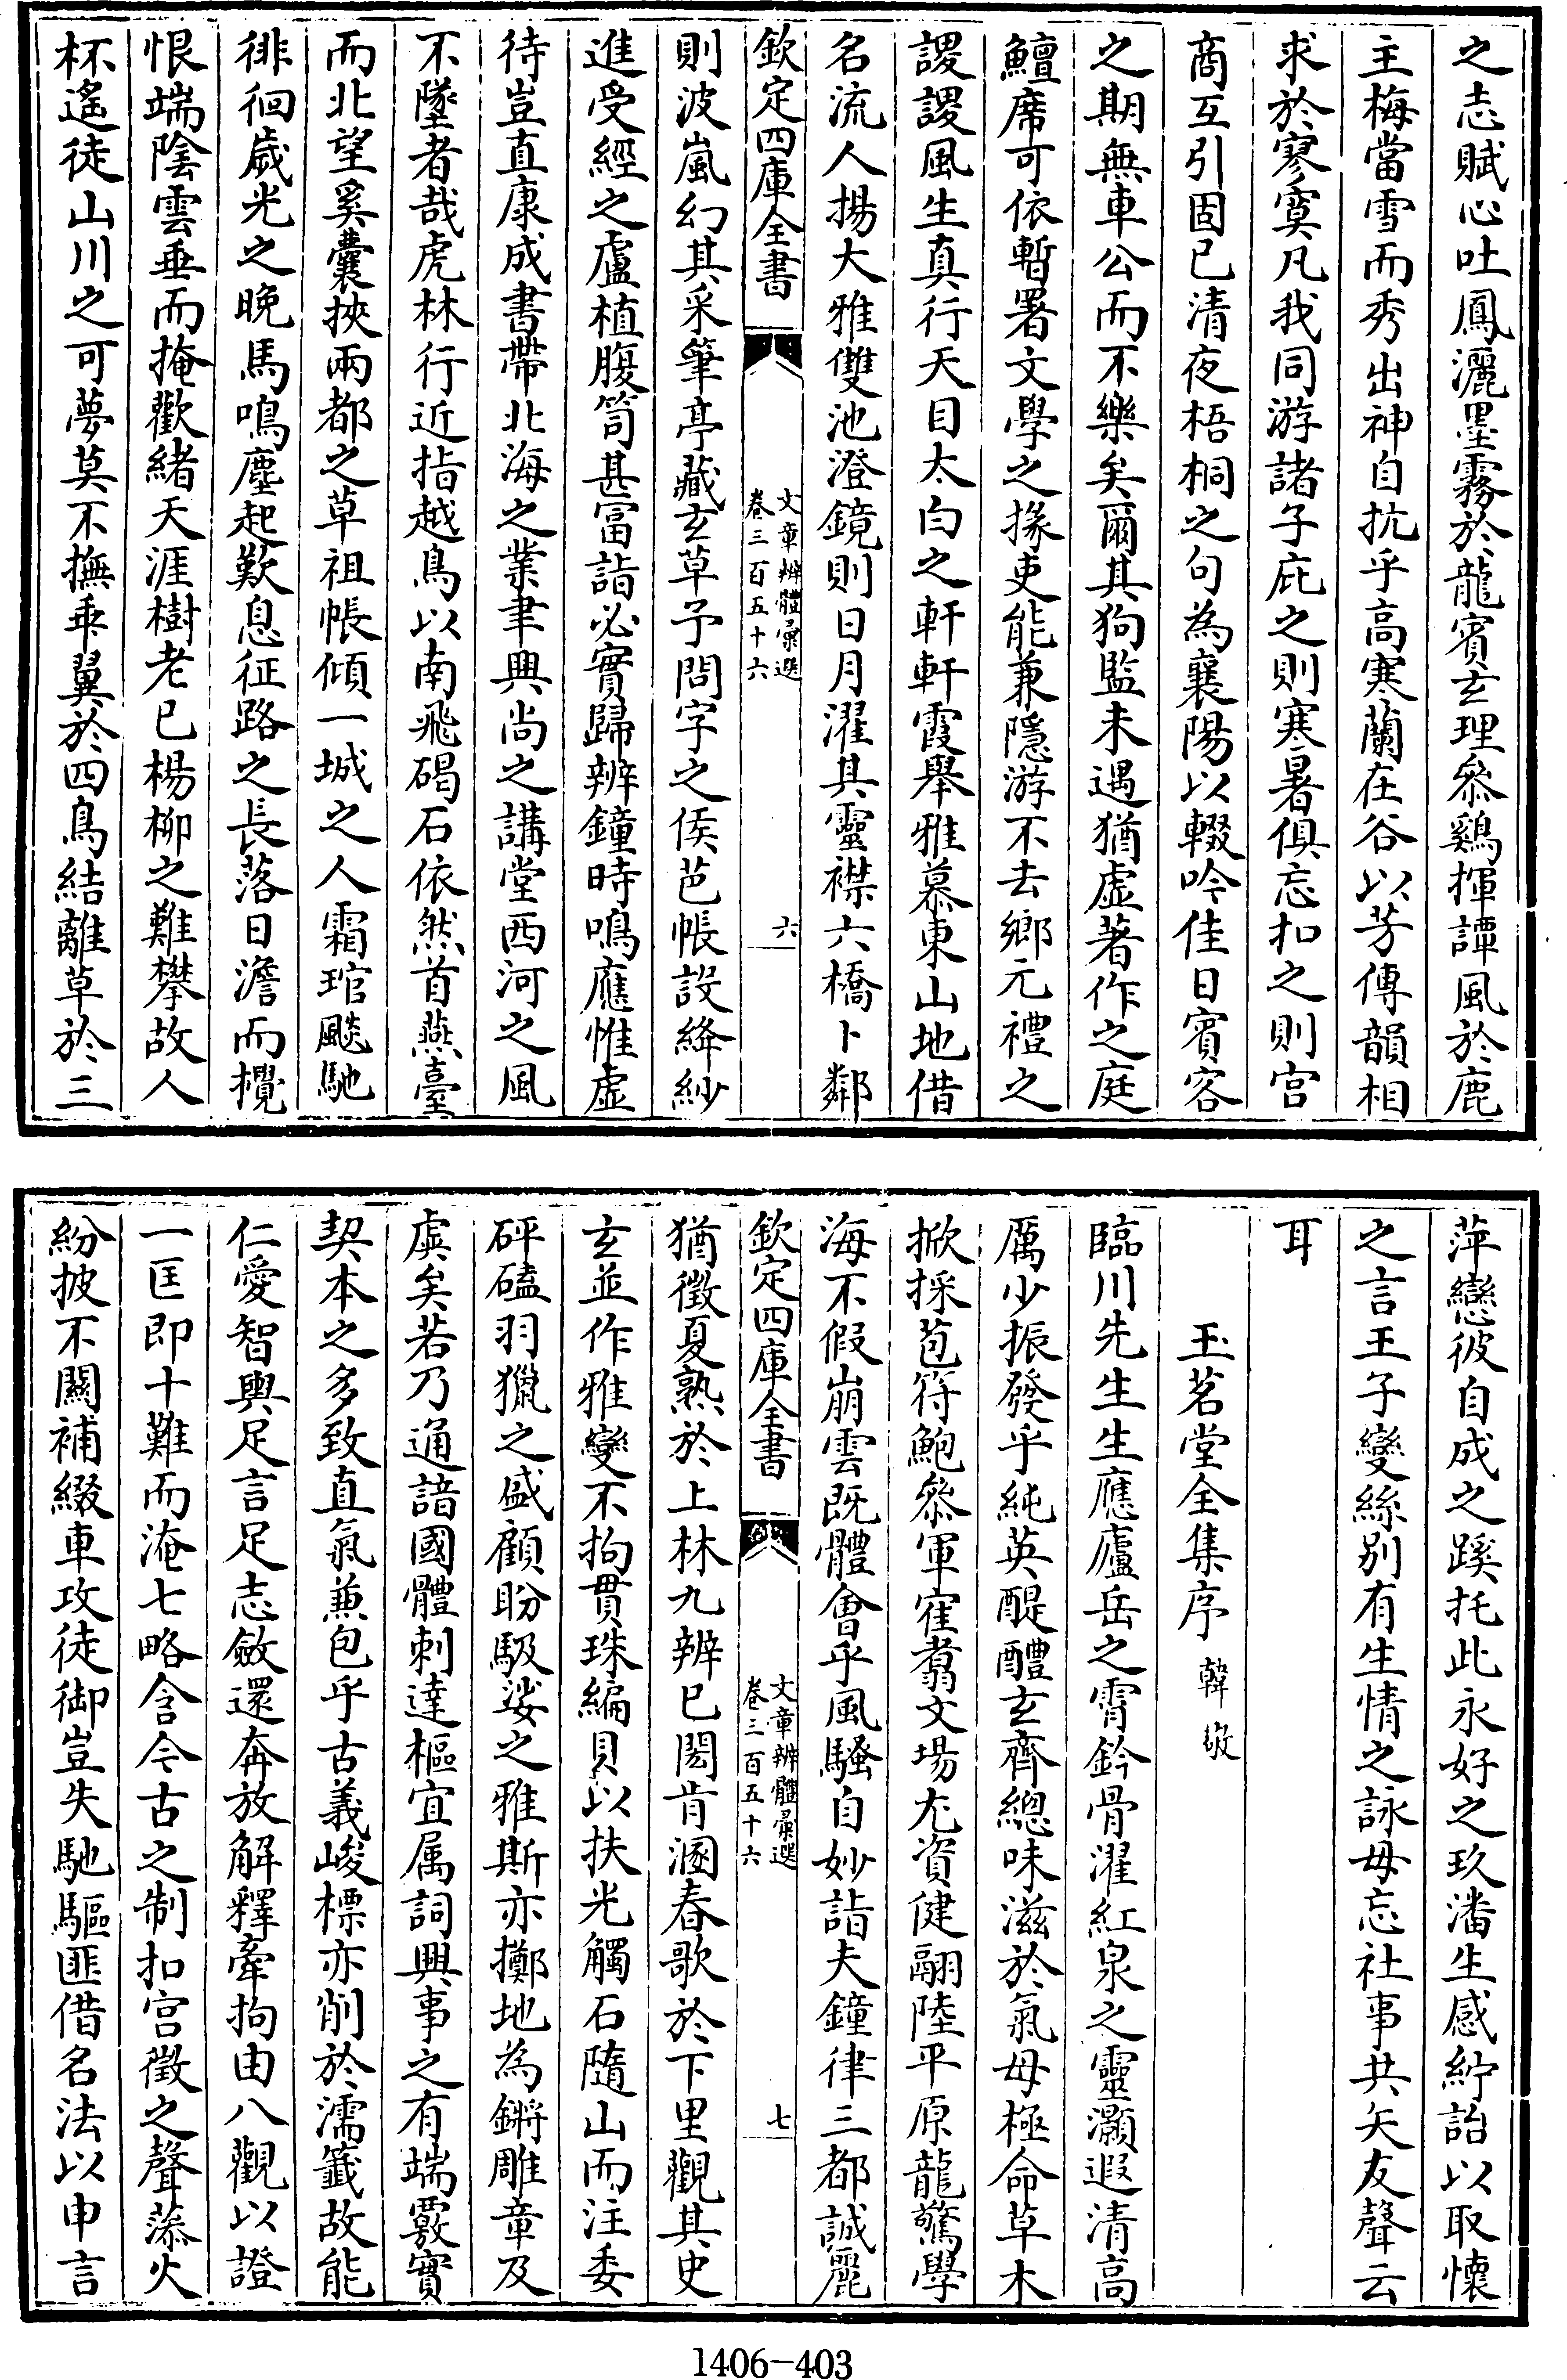 之志賦心吐鳳灑墨霧於龍賓玄理叅鷄揮譚風於鹿
主梅當雪而秀出神自抗乎高寒蘭在谷以芳傳韻相
求於寥寞凡我同游諸子庇之則寒暑俱忘扣之則宫
商互引固已清夜梧桐之句為襄陽以輟吟佳日賓客
之期無車公而不樂矣爾其狗監未遇猶虛著作之庭
鱣席可依暫署文學之掾吏能兼隱游不去鄉元禮之
謖謖風生真行天目太白之軒軒霞舉雅慕東山地借
名流人揚大雅雙池澄鏡則日月濯其靈襟六橋卜鄰
欽定四庫全書
文章辨體彙選
卷三百五十六
六
則波嵐幻其采筆亭藏玄草予問字之侯芭帳設絳紗
進受經之盧植腹笥甚富詣必實歸辨鐘時鳴應惟虛
待豈直康成書帶北海之業聿興尚之講堂西河之風
不墜者哉虎林行近指越鳥以南飛碣石依然首燕臺
而北望奚囊挾兩都之草祖帳傾一城之人霜琯颷馳
徘徊歲光之晚馬鳴塵起歎息征路之長落日澹而攪
恨端陰雲垂而掩歡緒天涯樹老已楊柳之難攀故人
杯遙徒山川之可夢莫不撫乖翼於四鳥結離草於三
萍戀彼自成之蹊托此永好之玖潘生感紵詒以取懷
之言王子變絲别有生情之詠毋忘社事共矢友聲云
耳
玉茗堂全集序 韓敬
臨川先生生應廬岳之霄鈴骨濯紅泉之靈灝遐清高
厲少振發乎純英醍醴玄齊總味滋於氣母極命草木
掀採苞符鮑叅軍寉翥文場尤資健翮陸平原龍驚學
海不假崩雲既體會乎風騷自妙詣夫鐘律三都誠麗
欽定四庫全書
文章辨體彙選
卷三百五十六
七
猶徵夏熟於上林九辨已閎肯溷春歌於下里觀其史
玄並作雅變不拘貫珠編貝以扶光觸石隨山而注委
砰磕羽獵之盛顧盼馺娑之雅斯亦擲地為鏘雕章及
虞矣若乃通諳國體刺達樞宜属詞興事之有端覈實
契本之多致直氣兼包乎古義峻標亦削於濡籖故能
仁愛智輿足言足志斂還奔放解釋牽拘由八觀以證
一匡即十難而淹七略含今古之制扣宫徵之聲藻火
紛披不闗補綴車攻徒御豈失馳驅匪借名法以申言
1406-403